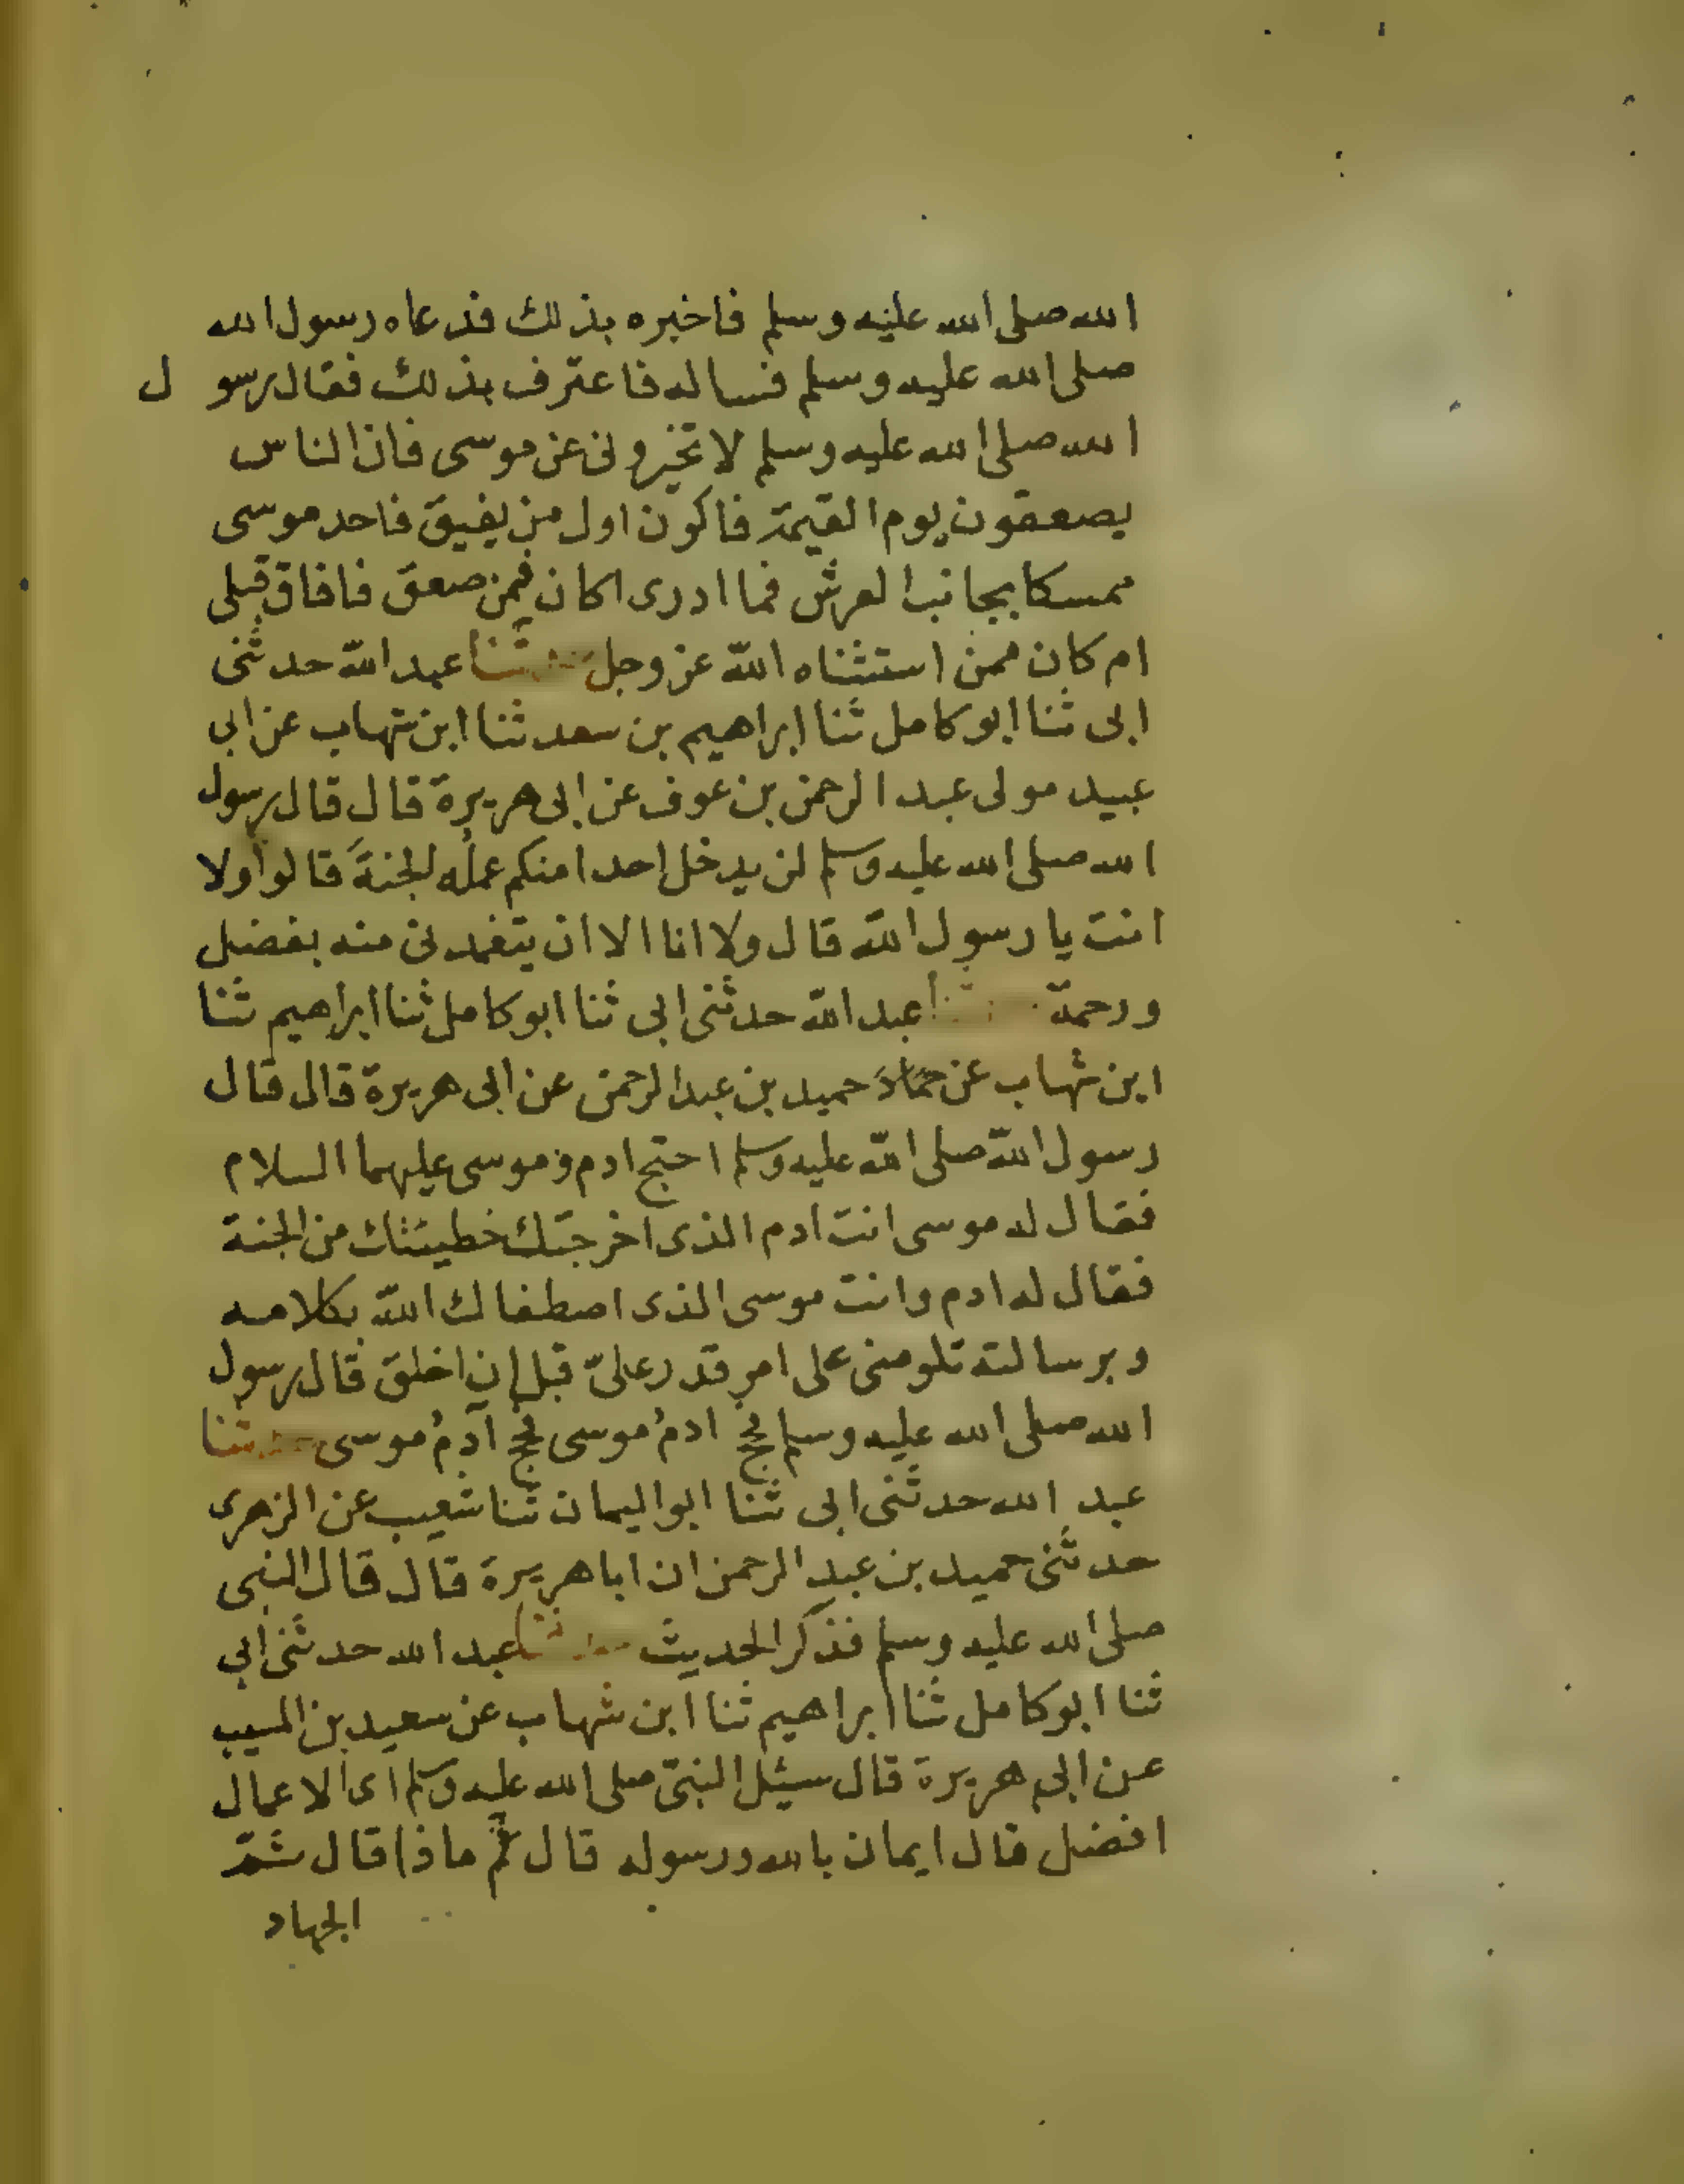 الله صلى الله عليه وسلم فاخبره بذلك فدعاه رسول الله
صلى الله عليه وسلم فساله فاعترف بذلك فقال رسو ل
الله صلى الله عليه وسلم لا تخيروني عن موسى فان الناس
يصعقون يوم القيمة فاكون اول من يفيق فاحد موسى
ممسكا بجانب العرش فما ادرى اكان فيمن صعق فافاق قبلى
ام كان ممن استثناه الله عز وجل حدثنا عبد الله حدثنى
ابى ثنا ابو كامل ثنا ابراهيم بن سعد ثنا ابن شهاب عن ابي
عبيد مولى عبد الرحمن بن عوف عن ابى هريرة قال قال رسول
الله صلى الله عليه وسلم لن يدخل احدا منكم عمله لجنة قالوا ولا
انت يا رسول الله قال ولا انا الا ان يتغمدنى منه بفضل
ورحمة حدثنا عبد الله حدثنى ابى ثنا ابو كامل ثنا ابراهيم ثنا
ابن شهاب عن حماد حميد بن عبد الرحمن عن ابى هريرة قال قال
رسول الله صلى الله عليه وسلم احتج ادم وموسى عليهما السلام
فقال له موسى انت ادم الذى اخرجتك خطيئتك من الجنة
فقال له ادم وانت موسى الذى اصطفاك الله بكلامه
وبرسالته تلومنى على امر قدر علىّ قبل ان اخلق قال رسول
الله صلى الله عليه وسلم فحج ادمُ موسى فحج آدمُ موسى حدثنا
عبد الله حدثنى ابى ثنا ابو اليمان ثنا شعيب عن الزهرى
حدثنى حميد بن عبد الرحمن ان ابا هريرة قال قال النبى
صلى الله عليه وسلم فذكر الحديث حدثنا عبد الله حدثنى ابي
ثنا ابو كامل ثنا ابراهيم ثنا ابن شهاب عن سعيد بن المسيب
عن ابى هريرة قال سئل النبىّ صلى الله عليه وسلم اى الاعمال
افضل قال ايمان بالله ورسوله قال ثم ماذا قال ثمّ
الجهاد